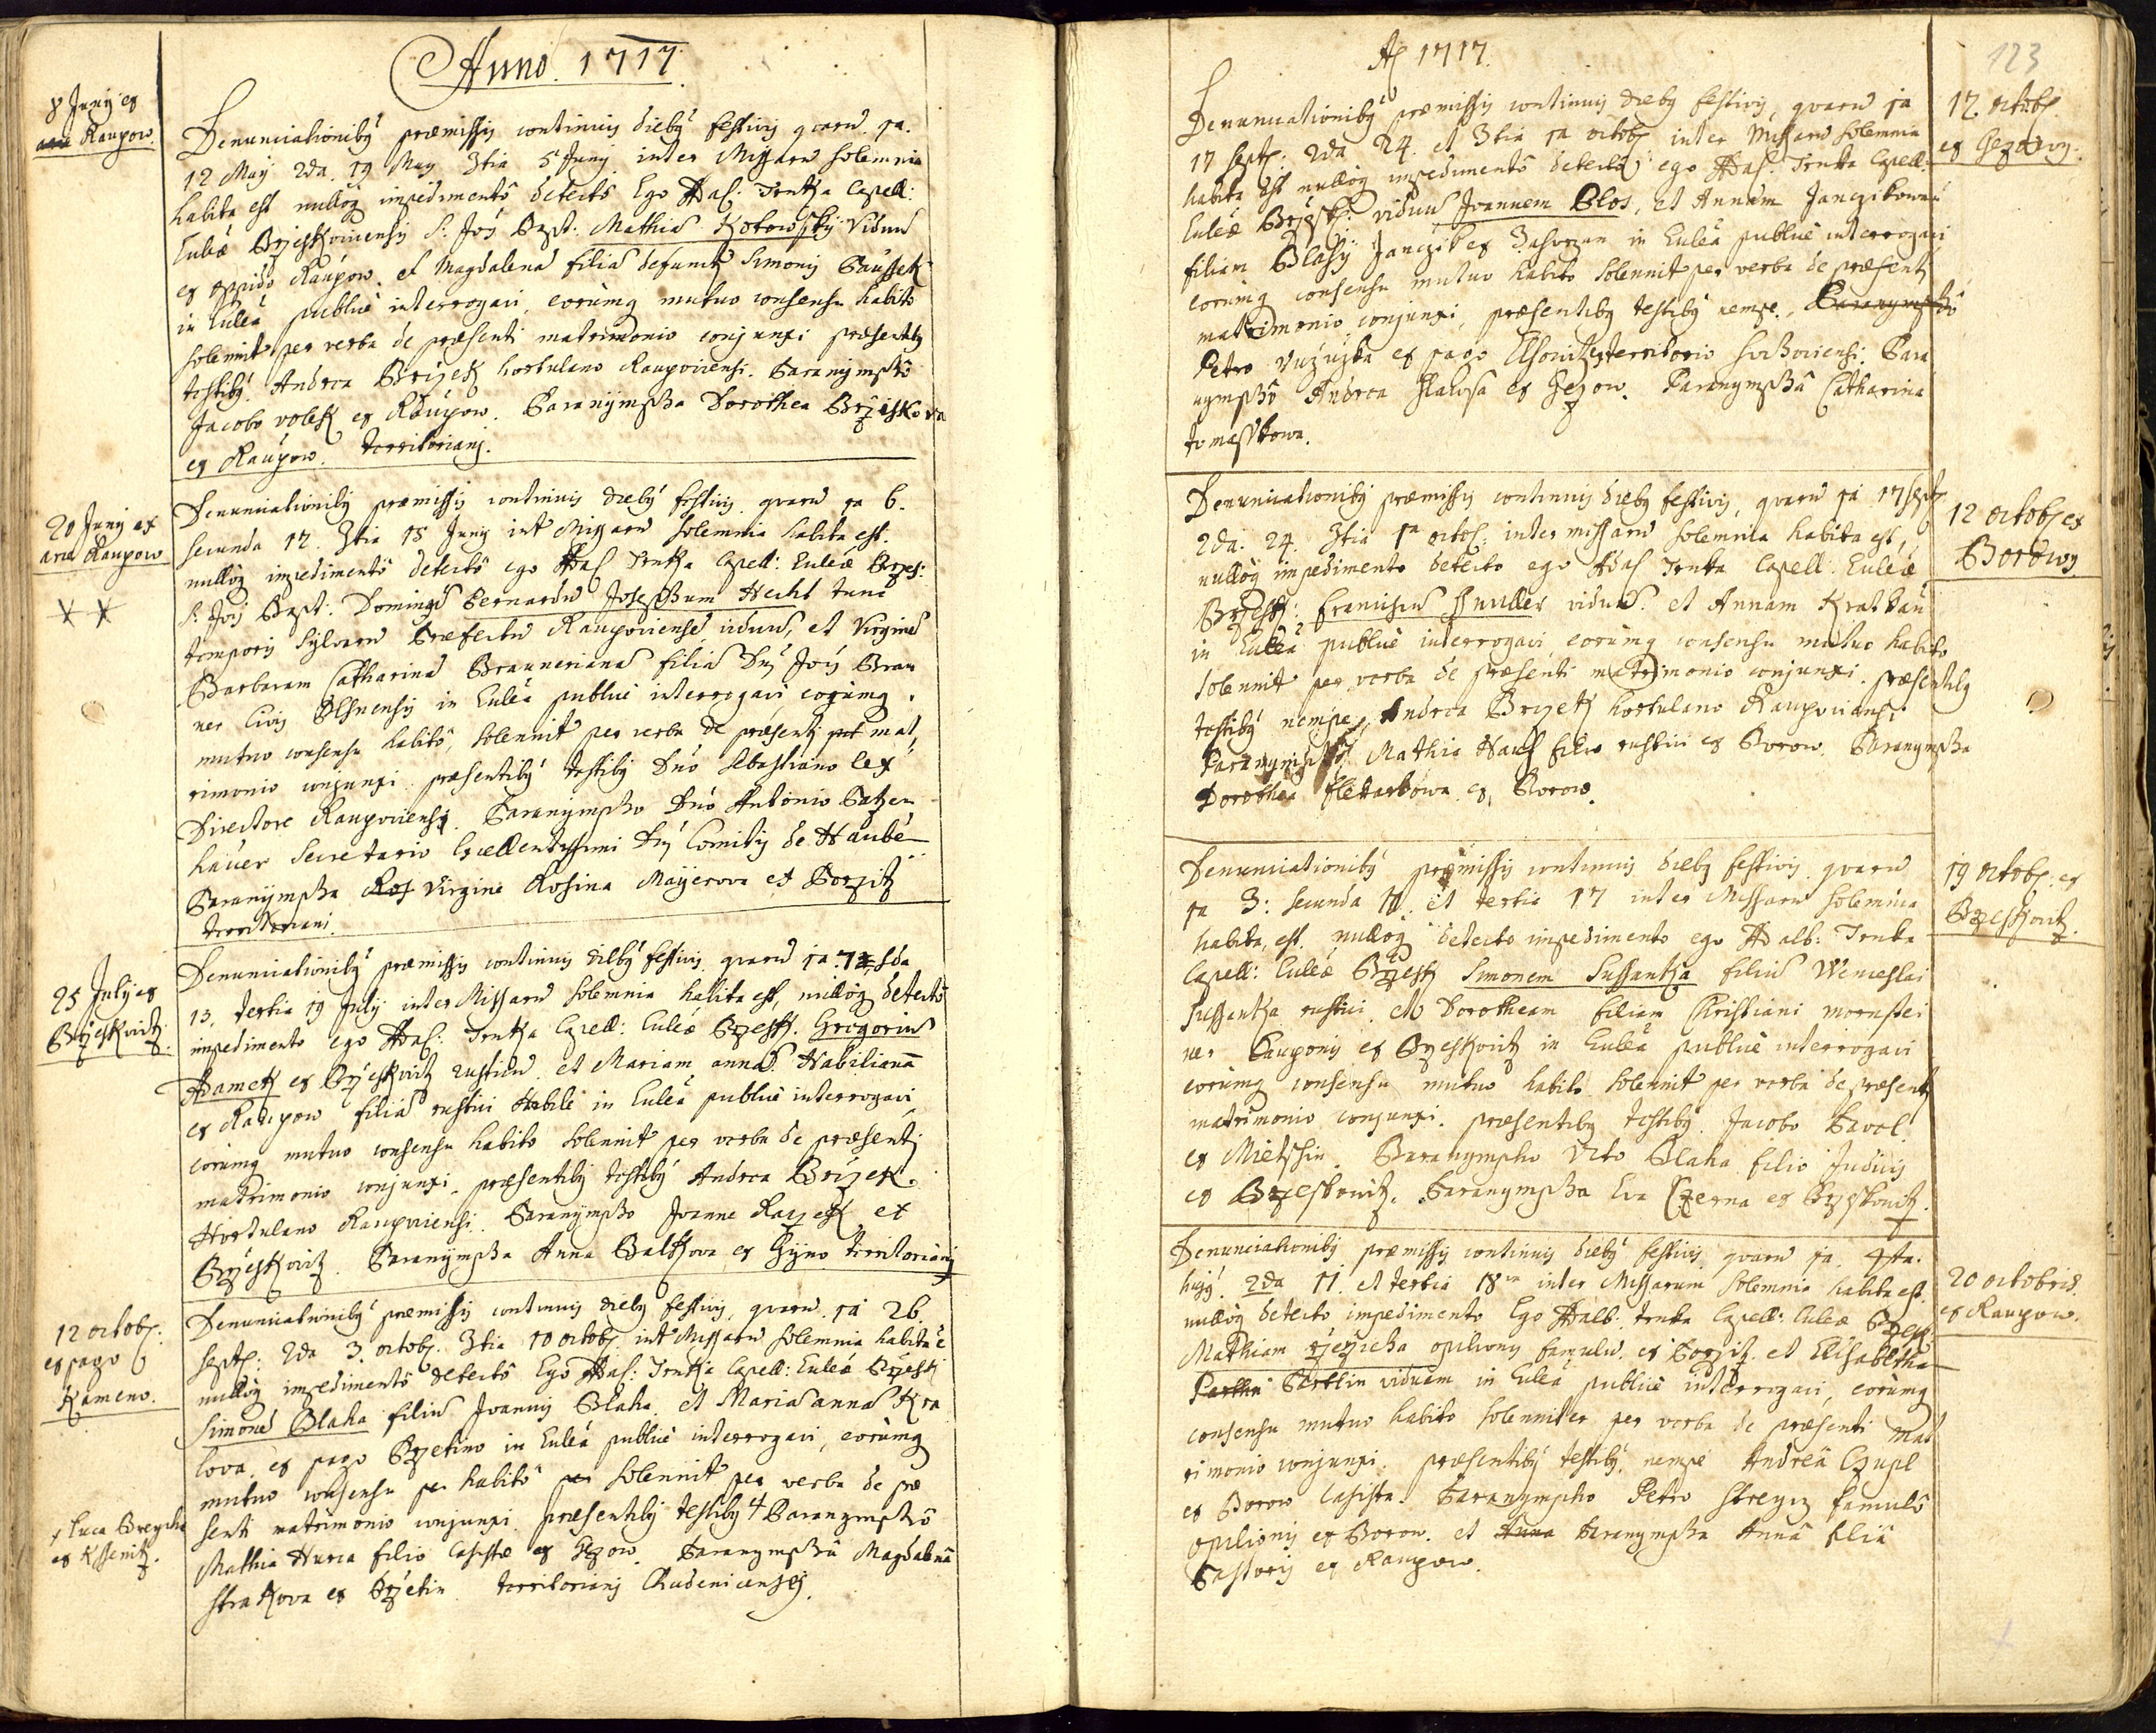 Anno. 1717.
8 Junij ex
arce Raupow.
Denunciationibq præmissis continuis diebq festivis quarũ 1a.
12 Maij 2da. 19 May 3tia 5 Junij inter Missarũ solemnia
habita est nulloq impedimento detecto Ego Adal: Trnka Capell:
Eulæ Brzeskovicensis S: Jois Bapt: Mathiã Kotowsky viduũ
ex oppido Raupow. et Magdalenã filiã defuncti Simonis Baussek
in Eulâ publicè interrogavi, eorumq mutuo consensu habito
solennit per verba de præsenti matrimonio conjunxi præsentibq
testibq Andrea Brizek hortulano Raupoviensi. Paranympho
Jacobo volek ex Raupow. Paranympha Dorothea Brzeskova
ex Raupow. territorianj.
20 Junij ex
arce Raupow
Denunciationibq præmissis continuis diebq festivis quarũ 1a 6.
secunda 12. 3tia 15 Junij int Missarũ solemnia habita est.
nulloq impedimento detecto ego Adal Trnka Capell: Eulæ Brzes:
S: Jois Bapt: Dominũ Bernardũ Josephum Hecht tunc
temporis sylvarũ Præfectũ Raupoviensẽ viduũ, et Virginẽ
Barbaram Catharinã Braunerianã filiã Dni Jois Brau
ner Civis Plsnensis in Eulâ publicè interrogavi eorumq
mutuo consensu habito, solennit per verba de præsenti mat
rimonio conjunxi præsentibq testibq Dno Sebastiano Lex
Directore Raupoviensi. Paranympho Dno Antonio Patzen
hauer Secretario Excellentissimi Dni Comitis de Haubé
Paranympha Virgine Rosina Mayerova et Porzitz
territoriani.
25 Julij ex
Brzeskovitz
Denunciationibq præmissis continuis diebq festivis quarũ 1a. sda
13. tertia 19 Julij inter Missarũ solemnia habita est, nulloq detecto
impedimento ego Adal: Trnka Capell: Eulæ Brzesk. Gregoriũ
Adamek ex Brzeskovitz rusticũ. et Mariam annã Habilianã
ex Raupow filiã rustici Habile in Eulâ publicè interrogavi
eorumq mutuo consensu habito solennit per verba de præsenti
matrimonio conjunxi. præsentibq testibq Andrea Brizek
Hortulano Raupoviensi. Paranympho Joanne Razek et
Brzeskovitz. Paranympha Anna Balkova ex Chzyno territorianj
12 octobr:
ex pago
Kameno.
Denunciationibq præmissis continuis diebq festivis, quarũ 1a 26.
Septr: 2da 3. octobr. 3tia 10 octobr. int Missarũ solemnia habita e
nulloq impedimento detecto Ego Adal: Trnka Capell: Eulæ Brzesk
Simonẽ Blaha filiũ Joannis Blaha. et Mariã annã Kra
lova ex pago Brzetino in Eulâ publicè interrogavi, eorumq
mutuo consensu habito solennit per verba de præ
senti matrimonio conjunxi. præsentibq testibq + Paranympho
+ Luca Breycha
ex Kssenitz.
Mathia Hura filio Casistæ ex Gezow. Paranymphâ Magdalena
strakova ex Brzetin territorianj Chudenicensis.
Ao 1717.
123
12 octobr.
ex Gezowy.
Denunciationibq præmissis continuis diebq festivis, quarũ 1a
17 Septr. 2da 24. et 3tia 1a octobr inter Missarũ solemnia
habita est nulloq impedimento detecto ego Adal: Trnka Capell:
Eulæ Brzesk: viduũ Joannem Blos, et Annam Janczikowã
filiam Blasij Janczik ex in Eulâ publicè interrogavi
eorumq consensu mutuo habito solennit per verba de præsenti
matrimonio conjunxi, præsentibq testibq nempe, Paranympho
Petro ex pago territorio. Para
nympho Andrea ex Gezow. Paranymphâ Catharina
tomasskowa.
12 octobr ex
Borowy
Denunciationibq præmissis continuis diebq festivis, quarũ 1a 17 septr
2da. 24. 3tia 1a octob: inter missarũ solemnia habita est,
nulloq impedimento detecto ego Adal Trnka Capell. Eulæ
Brzesk: Franciscũ viduũ et Annam
in Eulâ publicè interrogavi, eorumq consensu mutuo habito
solennit per verba de præsenti matrimonio conjunxi. præsentibq
testibq nempe, Andrea Brizek hortulano Raupoviensi
Paranympho Mathia filio rustici ex Borow. Paranympha
Dorothea ex Borow.
19 octobr. ex
Brzeskovitz.
Denunciationibq præmissis continuis diebq festivis. quarũ
1a 3: secunda 10. et tertia 17 inter Missarũ solemnia
habita, est. nulloq detecto impedimento ego Adalb: Trnka
Capell: Eulæ Brzesk Simonem Sussanka filiũ Wenceslai
Sussanka rustici et Dorotheam filiam Christiani mornstei
ner Cauponis ex Brzeskovitz in Eulâ publicè interrogavi
eorumq consensu mutuo habito solennit per verba de præsenti
matrimonio conjunxi. præsentibq testibq. Jacobo Pavel
ex Mietschin. Paranympho Vito Blaha filio Judicis
ex Brzeskovitz. Paranympha Eva Czerna ex Brzeskovitz.
20 octobris
ex Raupow.
Denunciationibq præmissis continuis diebq festivis, quarũ 1a. 4ta.
hujq. 2da 11. et tertia 18va inter Missarum solemnia habita est.
nulloq detecto impedimento Ego Adalb: Trnka Capell: Eulæ Brzesk:
Mathiam opilionis famulũ. ex Porzitz. et Elisabetha
Bartlin viduam in Eulâ publicè interrogavi, eorumq
consensu mutuo habito solenniter per verba de præsenti mat
rimonio conjunxi. præsentibq testibq. nempe Andreâ Czupl
ex Borow Casista. Paranympho Petro streycz famulo
opilionis ex Borow. et Paranympha Annâ filiâ
Pastoris ex Raupow.